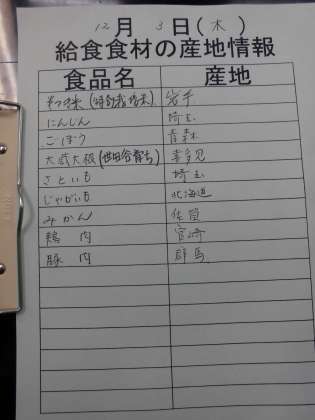 12月 3日(木)
給食食材の産地情報
食品名 産地
お米(特別栽培米) 岩手
にんじん 埼玉
ごぼう 青森
大蔵大根(世田谷育ち) 喜多見
さといも 埼玉
じゃがいも 北海道
みかん 佐賀
鶏肉 宮崎
豚肉 群馬